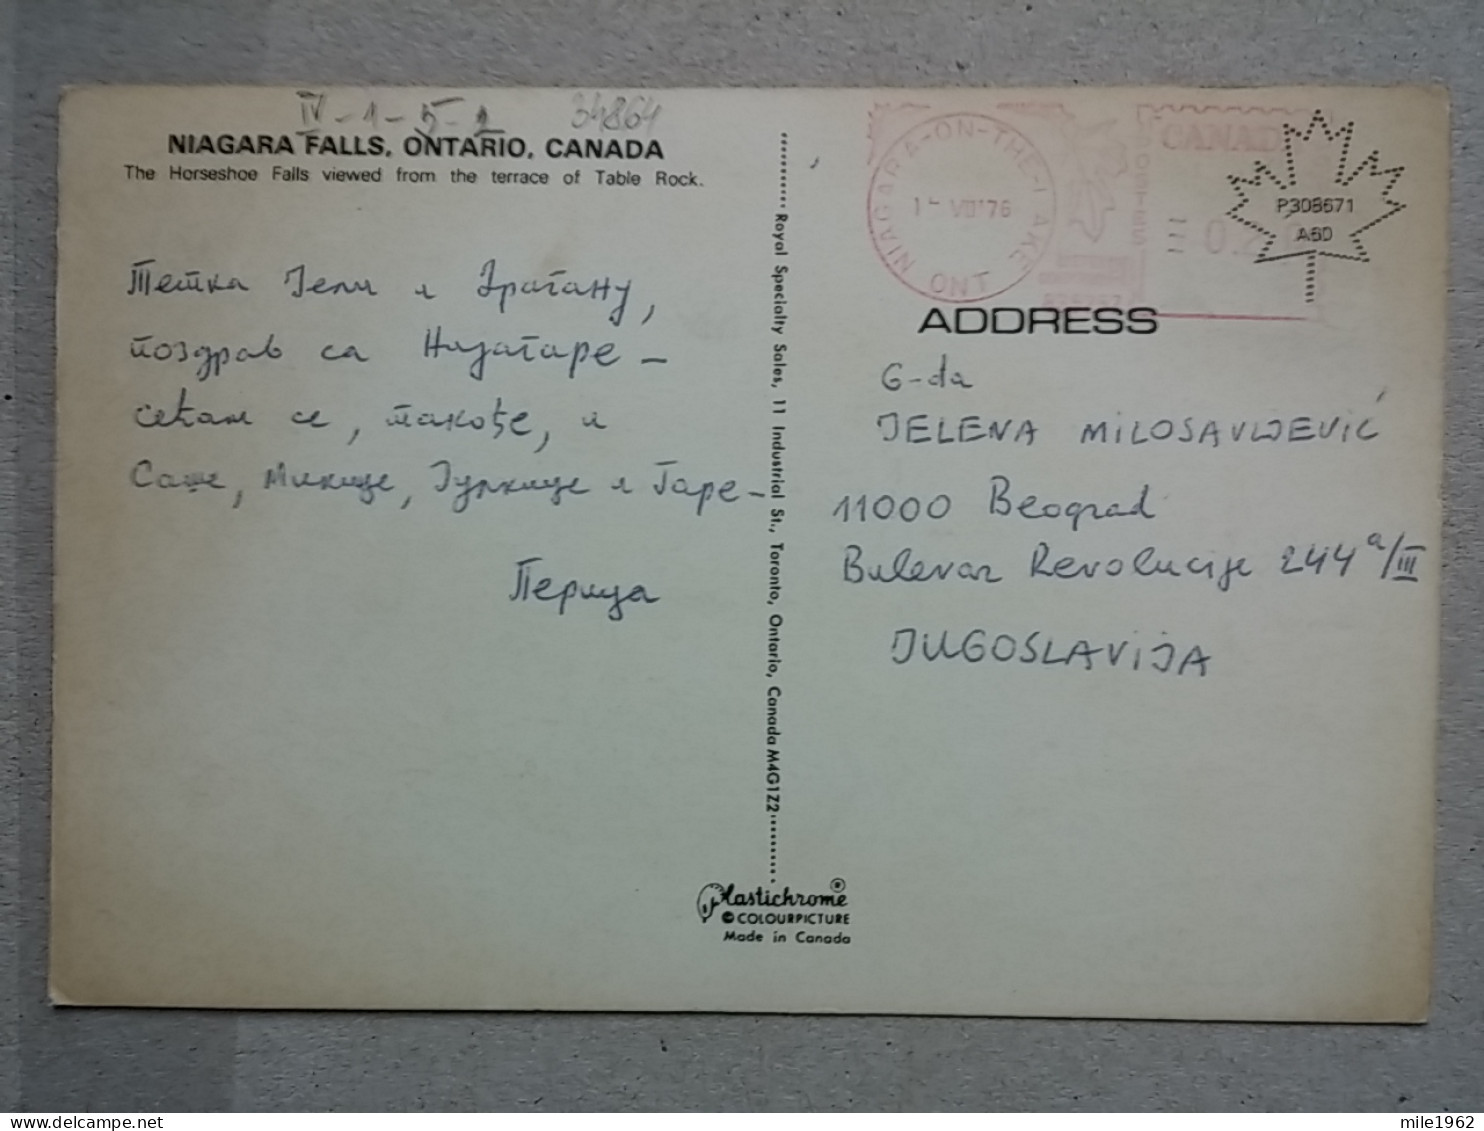 IV-1-5-2 34864
NIAGARA FALLS, ONTARIO, CANADA
The Horseshoe Falls viewed from the terrace of Table Rock.
Тетка Јели и Драгану,
поздрав са Нијагаре –
сећам се, такође, и
Саше, Микице, Ђуркице и Гаре –
Перица
Royal Specialty Sales, 11 Industrial St., Toronto, Ontario, Canada M4G1Z2
Plastichrome ®
© COLOURPICTURE
Made in Canada
NIAGARA-ON-THE-LAKE
VII '76
ONT
CANADA
POSTES
P308671
A60
ADDRESS
G-da
JELENA MILOSAVLJEVIĆ
11000 Beograd
Bulevar Revolucije 244a/III
JUGOSLAVIJA
mile1962